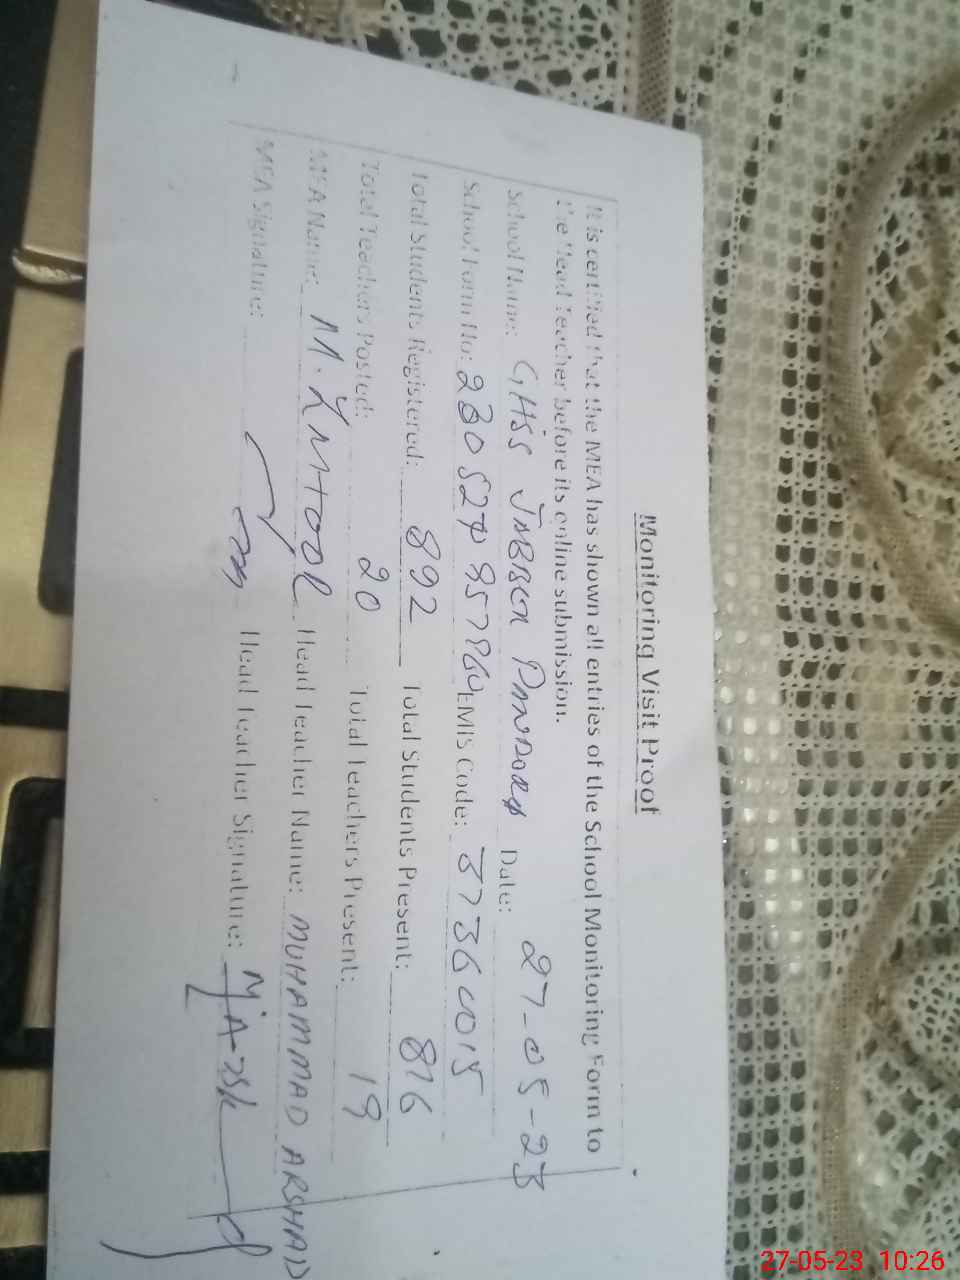 Monitoring Visit Proof
It is certified that the MEA has shown all entries of the School Monitoring Form to
the Head Teacher before its online submission.
School Name: GHSS JABBER Date: 27-05-23
School Form No: EMIS Code:
Total Students Registered: 892 Total Students Present: 876
Total Teachers Posted: 20 Total Teachers Present: 19
MEA Name: Head Teacher Name: MUHAMMAD ARSHAD
MEA Signature: Head Teacher Signature:
27-05-23 10:26